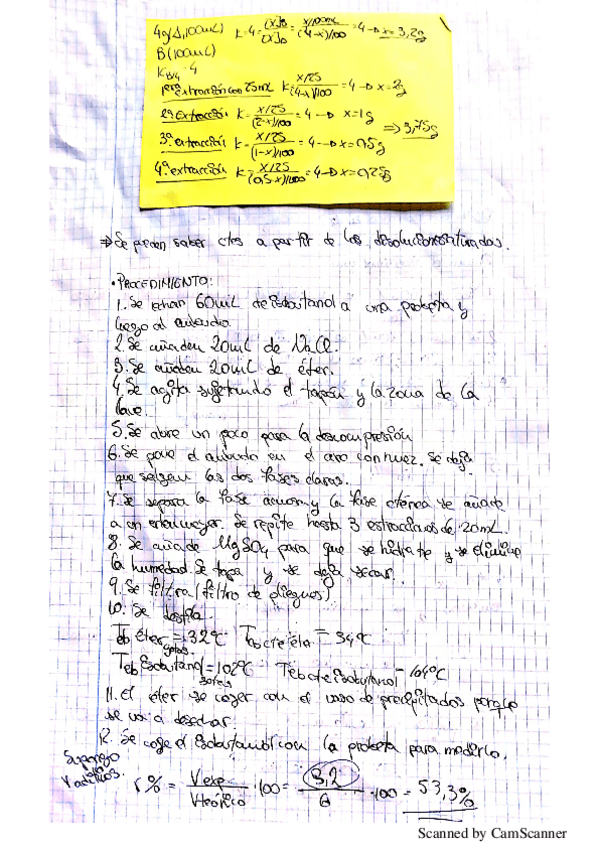 4g A, 100mL) K=4= [X]B/[X]A = (x/100mL)/((4-x)/100) = 4 → x=3,2g
B (100mL)
K B/A = 4
1era extracción con 25mL K= (x/25)/((4-x)/100) = 4 → x=2g
2ª extracción K= (x/25)/((2-x)/100) = 4 → x=1g
⇒ 3,75g
3ª extracción K= (x/25)/((1-x)/100) = 4 → x=0,5g
4ª extracción K= (x/25)/((0,5-x)/100) = 4 → x=0,25g
⇒ Se pueden saber ctes a partir de las
• PROCEDIMIENTO:
1. Se echan 60mL de isobutanol a una probeta y
luego al embudo
2. Se añaden 20mL de NaCl.
3. Se añaden 20mL de éter.
4. Se agita sujetando el tapón y la zona de la
llave.
5. Se abre un poco para la descompresión
6. Se pone el embudo en el aro con nuez. Se deja
que salgan las dos fases claras.
7. Se separa la fase acuosa y la fase etérea se añade
a un erlenmeyer. Se repite hasta 3 extracciones de 20mL.
8. Se añade MgSO4 para que se hidrate y se elimine
la humedad. Se tapa y se deja secar.
9. Se filtra (filtro de pliegues)
10. Se destila.
Teb éter = 32ºC Teb cte éter = 34ºC
gotas
Teb isobutanol = 102ºC Teb cte isobutanol = 104ºC
11. El éter se coge con el vaso de precipitados porque
se va a desechar.
12. Se coge el isobutanol con la probeta para medirlo.
Supongo
V aditivos.
r% = Vexp/Vteórico · 100 = 3,2/6 · 100 = 53,3%
Scanned by CamScanner